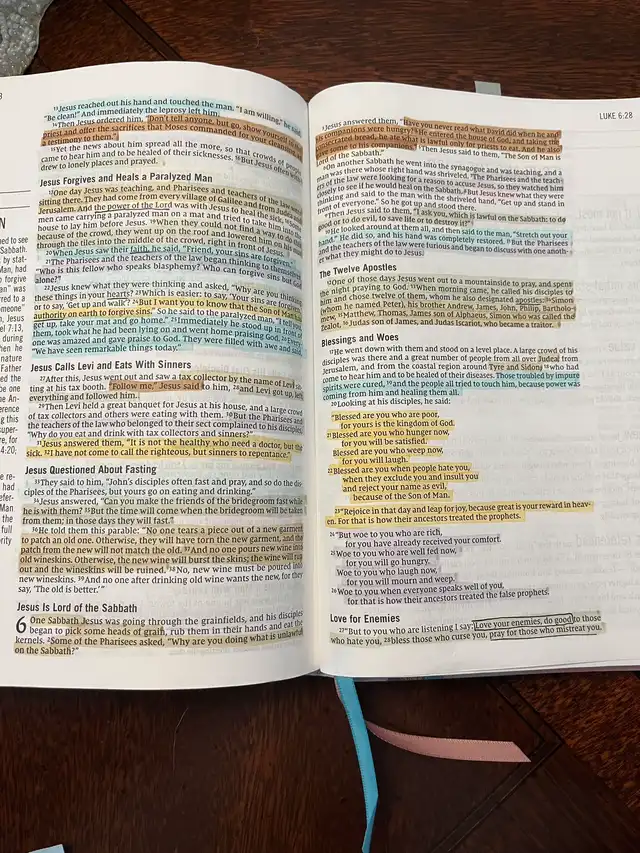 13Jesus reached out his hand and touched the man. "I am willing," he said.
"Be clean!" And immediately the leprosy left him.
14Then Jesus ordered him, "Don't tell anyone, but go, show yourself to the
priest and offer the sacrifices that Moses commanded for your cleansing, as
a testimony to them."
15Yet the news about him spread all the more, so that crowds of people
came to hear him and to be healed of their sicknesses. 16But Jesus often with-
drew to lonely places and prayed.
Jesus Forgives and Heals a Paralyzed Man
17One day Jesus was teaching, and Pharisees and teachers of the law were
sitting there. They had come from every village of Galilee and from Judea and
Jerusalem. And the power of the Lord was with Jesus to heal the sick. 18Some
men came carrying a paralyzed man on a mat and tried to take him into the
house to lay him before Jesus. 19When they could not find a way to do this
because of the crowd, they went up on the roof and lowered him on his mat
through the tiles into the middle of the crowd, right in front of Jesus.
20When Jesus saw their faith, he said, "Friend, your sins are forgiven."
21The Pharisees and the teachers of the law began thinking to themselves,
"Who is this fellow who speaks blasphemy? Who can forgive sins but God
alone?"
22Jesus knew what they were thinking and asked, "Why are you thinking
these things in your hearts? 23Which is easier: to say, 'Your sins are forgiven,'
or to say, 'Get up and walk'? 24But I want you to know that the Son of Man has
authority on earth to forgive sins." So he said to the paralyzed man, "I tell you,
get up, take your mat and go home." 25Immediately he stood up in front of
them, took what he had been lying on and went home praising God. 26Every-
one was amazed and gave praise to God. They were filled with awe and said,
"We have seen remarkable things today."
Jesus Calls Levi and Eats With Sinners
27After this, Jesus went out and saw a tax collector by the name of Levi sit-
ting at his tax booth. "Follow me," Jesus said to him, 28and Levi got up, left
everything and followed him.
29Then Levi held a great banquet for Jesus at his house, and a large crowd
of tax collectors and others were eating with them. 30But the Pharisees and
the teachers of the law who belonged to their sect complained to his disciples,
"Why do you eat and drink with tax collectors and sinners?"
31Jesus answered them, "It is not the healthy who need a doctor, but the
sick. 32I have not come to call the righteous, but sinners to repentance."
Jesus Questioned About Fasting
33They said to him, "John's disciples often fast and pray, and so do the dis-
ciples of the Pharisees, but yours go on eating and drinking."
34Jesus answered, "Can you make the friends of the bridegroom fast while
he is with them? 35But the time will come when the bridegroom will be taken
from them; in those days they will fast."
36He told them this parable: "No one tears a piece out of a new garment
to patch an old one. Otherwise, they will have torn the new garment, and the
patch from the new will not match the old. 37And no one pours new wine into
old wineskins. Otherwise, the new wine will burst the skins; the wine will run
out and the wineskins will be ruined. 38No, new wine must be poured into
new wineskins. 39And no one after drinking old wine wants the new, for they
say, 'The old is better.'"
Jesus Is Lord of the Sabbath
6 One Sabbath Jesus was going through the grainfields, and his disciples
began to pick some heads of grain, rub them in their hands and eat the
kernels. 2Some of the Pharisees asked, "Why are you doing what is unlawful
on the Sabbath?"
LUKE 6:28
3Jesus answered them, "Have you never read what David did when he and
his companions were hungry? 4He entered the house of God, and taking the
consecrated bread, he ate what is lawful only for priests to eat. And he also
gave some to his companions." 5Then Jesus said to them, "The Son of Man is
Lord of the Sabbath."
6On another Sabbath he went into the synagogue and was teaching, and a
man was there whose right hand was shriveled. 7The Pharisees and the teach-
ers of the law were looking for a reason to accuse Jesus, so they watched him
closely to see if he would heal on the Sabbath. 8But Jesus knew what they were
thinking and said to the man with the shriveled hand, "Get up and stand in
front of everyone." So he got up and stood there.
9Then Jesus said to them, "I ask you, which is lawful on the Sabbath: to do
good or to do evil, to save life or to destroy it?"
10He looked around at them all, and then said to the man, "Stretch out your
hand." He did so, and his hand was completely restored. 11But the Pharisees
and the teachers of the law were furious and began to discuss with one anoth-
er what they might do to Jesus.
The Twelve Apostles
12One of those days Jesus went out to a mountainside to pray, and spent
the night praying to God. 13When morning came, he called his disciples to
him and chose twelve of them, whom he also designated apostles: 14Simon
(whom he named Peter), his brother Andrew, James, John, Philip, Bartholo-
mew, 15Matthew, Thomas, James son of Alphaeus, Simon who was called the
Zealot, 16Judas son of James, and Judas Iscariot, who became a traitor.
Blessings and Woes
17He went down with them and stood on a level place. A large crowd of his
disciples was there and a great number of people from all over Judea, from
Jerusalem, and from the coastal region around Tyre and Sidon, 18who had
come to hear him and to be healed of their diseases. Those troubled by impure
spirits were cured, 19and the people all tried to touch him, because power was
coming from him and healing them all.
20Looking at his disciples, he said:
"Blessed are you who are poor,
for yours is the kingdom of God.
21Blessed are you who hunger now,
for you will be satisfied.
Blessed are you who weep now,
for you will laugh.
22Blessed are you when people hate you,
when they exclude you and insult you
and reject your name as evil,
because of the Son of Man.
23"Rejoice in that day and leap for joy, because great is your reward in heav-
en. For that is how their ancestors treated the prophets.
24"But woe to you who are rich,
for you have already received your comfort.
25Woe to you who are well fed now,
for you will go hungry.
Woe to you who laugh now,
for you will mourn and weep.
26Woe to you when everyone speaks well of you,
for that is how their ancestors treated the false prophets.
Love for Enemies
27"But to you who are listening I say: Love your enemies, do good to those
who hate you, 28bless those who curse you, pray for those who mistreat you.